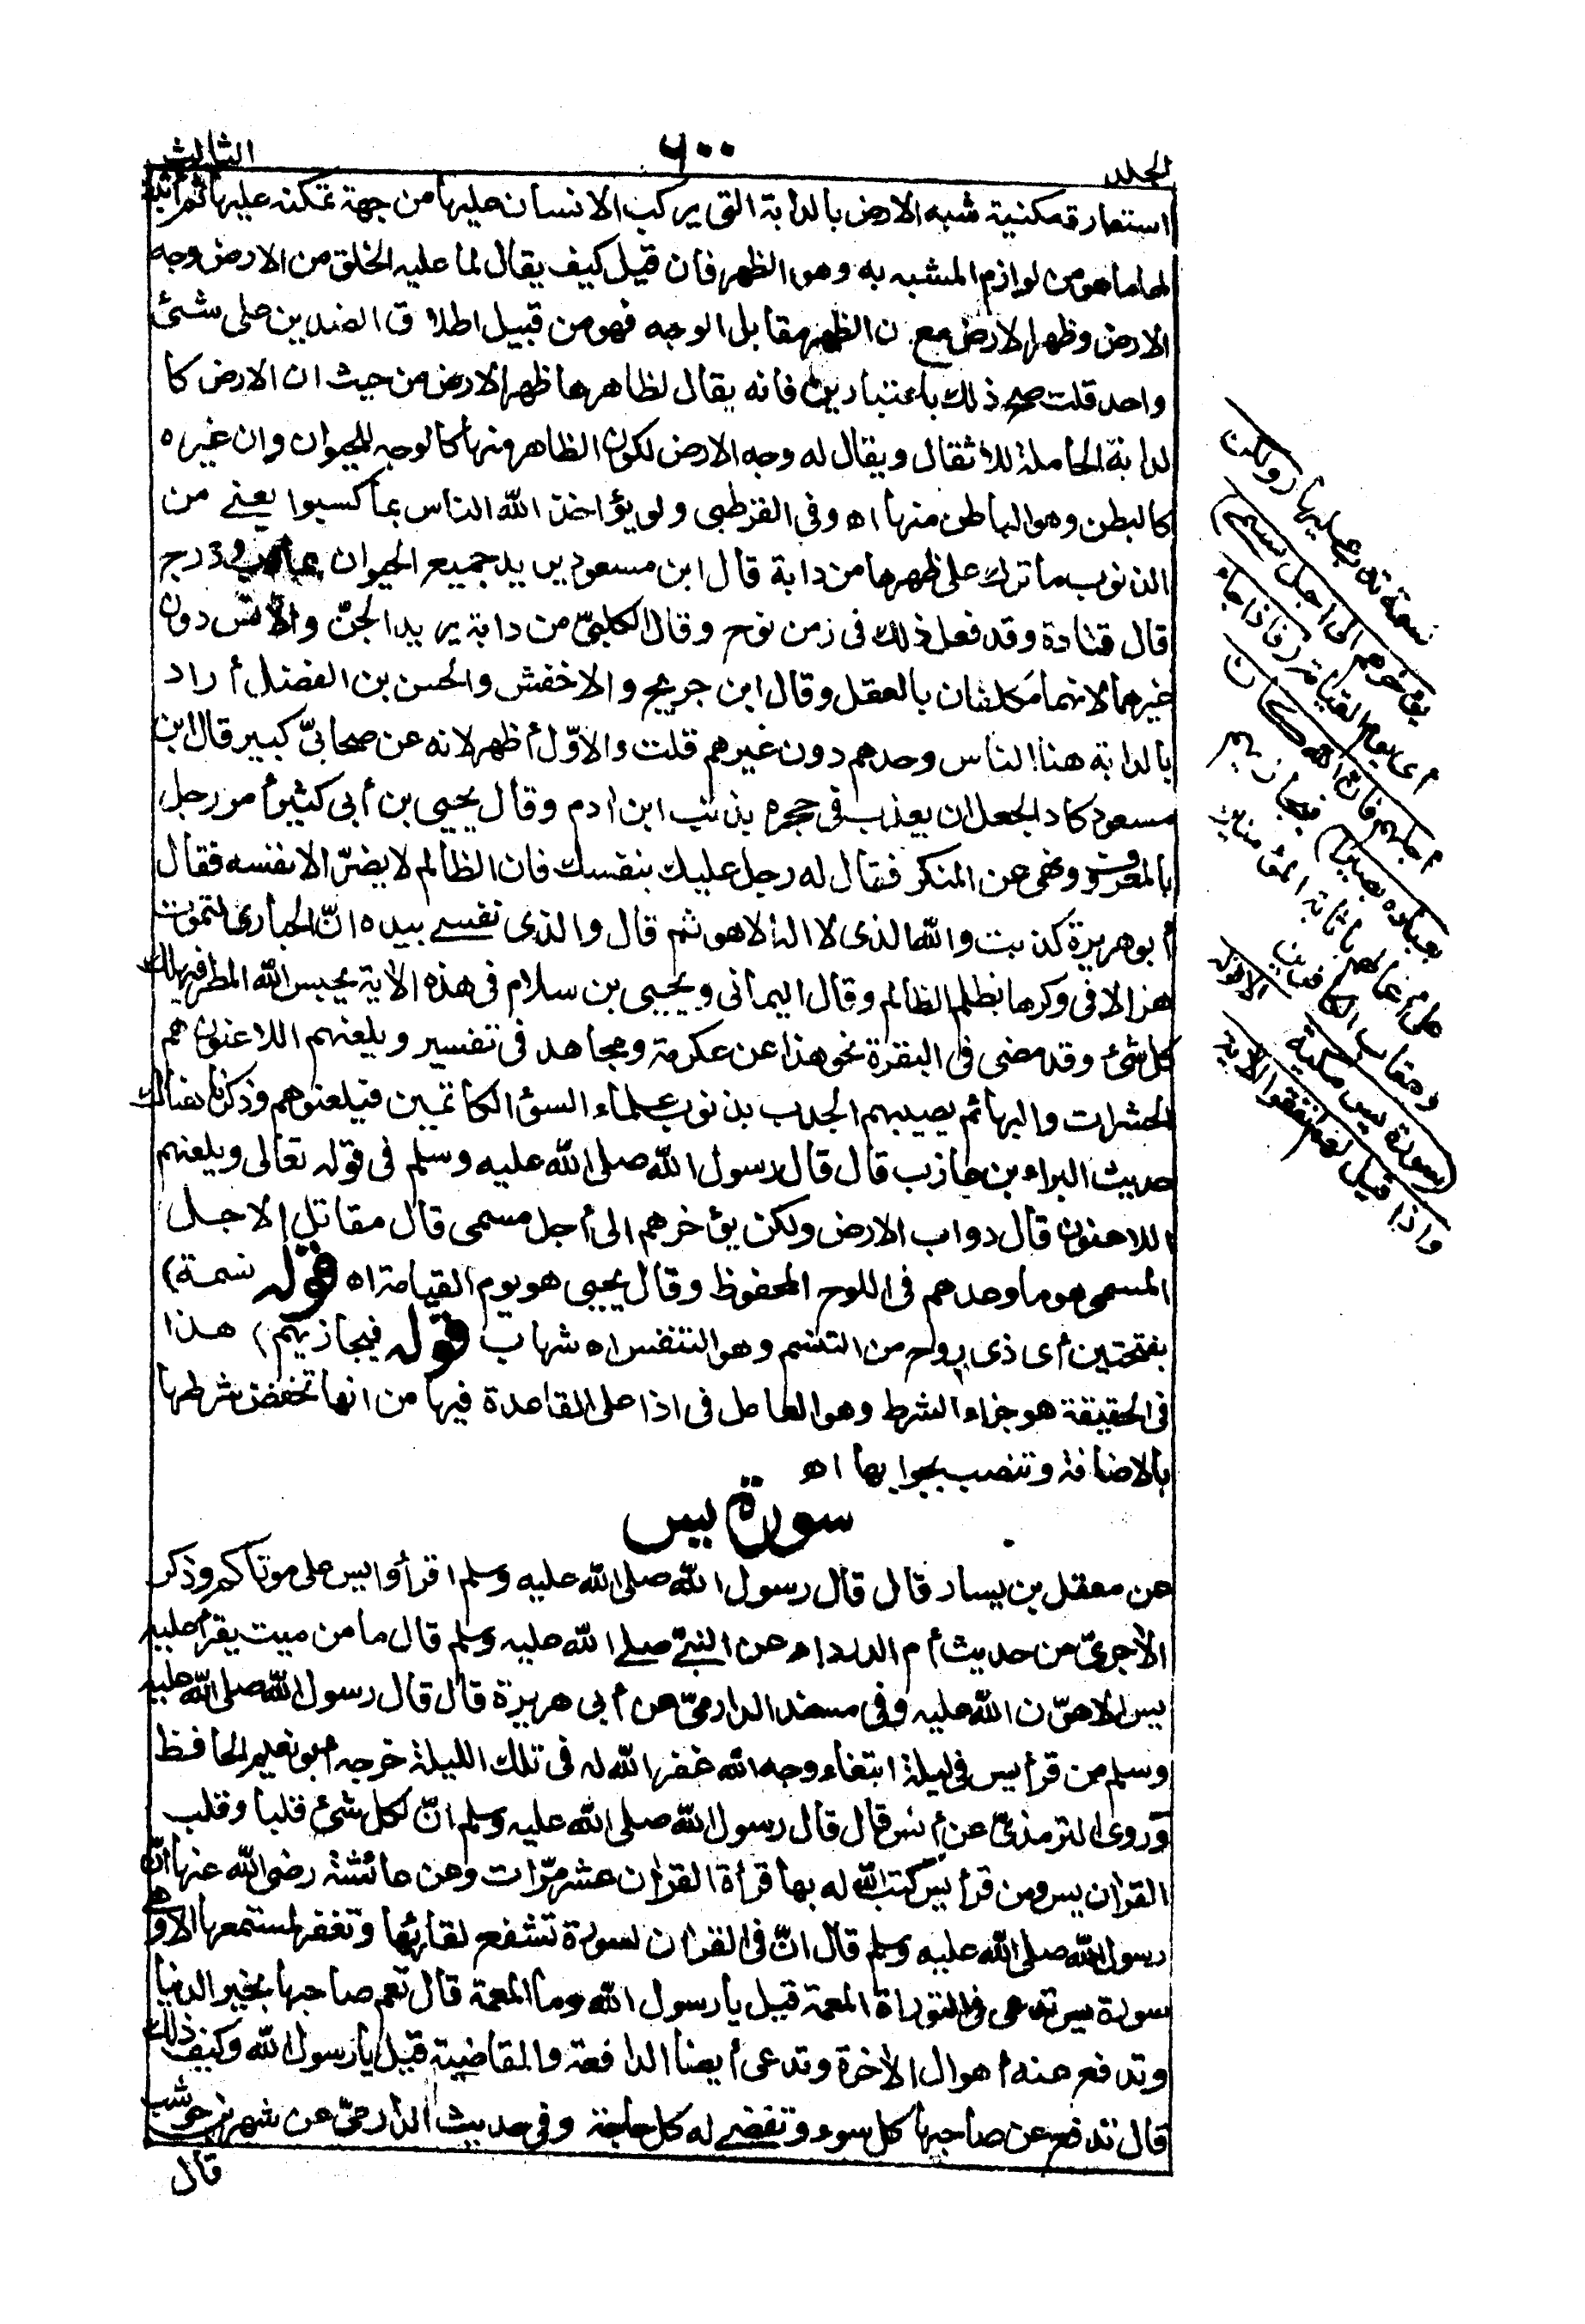 الجلد
٦٠٠
الثالث
استعارة مكنية شبه الارض بالدابة التى يركب الانسان عليها من جهة تمكنه عليها ثم أثبت
لها ما هو من لوازم المشبه به وهو الظهر فان قيل كيف يقال لما عليه الخلق من الارض وجه
الارض وظهر الارض مع ن الظهر مقابل الوجه فهو من قبيل اطلاق الضدين على شئ
واحد قلت صح ذلك باعتبارين فانه يقال لظاهرها ظهر الارض من حيث ان الارض كا
لدابة الحاملة للاثقال ويقال له وجه الارض لكون الظاهر منها كالوجه للحيوان وان غيره
كالبطن وهو الباطن منها اه وفى القرطبى ولو يؤاخذ الله الناس بما كسبوا يعنى من
الذنوب ما ترك على ظهرها من دابة قال ابن مسعود يريد جميع الحيوان مما دب ودرج
قال قتادة وقد فعل ذلك فى زمن نوح وقال الكلبىّ من دابة يريد الجنّ والانس دون
غيرهما لانهما مكلفان بالعقل وقال ابن جريج والاخفش والحسن بن الفضل أراد
بالدابة هنا الناس وحدهم دون غيرهم قلت والاوّل أظهر لانه عن صحابىّ كبير قال ابن
مسعود كاد الجعل ان يعذب فى حجره بذنب ابن ادم وقال يحيى بن أبى كثير أمر رجل
بالمعروف ونهى عن المنكر فقال له رجل عليك بنفسك فان الظالم لا يضرّ الا نفسه فقال
أبو هريرة كذبت والله الذى لا اله الا هو ثم قال والذى نفسى بيده انّ الحبارى لتموت
هزالا فى وكرها بظلم الظالم وقال اليمانى ويحيى بن سلام فى هذه الاية يحبس الله المطر فيهلك
كل شئ وقد مضى فى البقرة نحو هذا عن عكرمة ومجاهد فى تفسير ويلعنهم اللاعنون هم
الحشرات والبهائم يصيبهم الجدب بذنوب علماء السوء الكاتمين فيلعنوهم وذكرنا هناك
حديث البراء بن عازب قال قال رسول الله صلى الله عليه وسلم فى قوله تعالى ويلعنهم
اللاعنون قال دواب الارض ولكن يؤخرهم الى أجل مسمى قال مقاتل الاجل
المسمى هو ما وعدهم فى اللوح المحفوظ وقال يحيى هو يوم القيامة اه قوله نسمة)
بفتحتين أى ذى روح من التنسم وهو التنفس اه شهاب قوله فيجازيهم) هذا
فى الحقيقة هو جزاء الشرط وهو العامل فى اذا على القاعدة فيها من انها تخفض شرطها
بالاضافة وتنصب بجوابها اه
سورة يس
عن معقل بن يسار قال قال رسول الله صلى الله عليه وسلم اقرأوا يس على موتاكم وذكر
الآجرىّ من حديث أم الدرداء عن النبىّ صلى الله عليه وسلم قال ما من ميت يقرأ عليه
يس الا هوّن الله عليه وفى مسند الدارمىّ عن أبى هريرة قال قال رسول الله صلى الله عليه
وسلم من قرأ يس فى ليلة ابتغاء وجه الله غفر الله له فى تلك الليلة خرجه أبو نعيم الحافظ
وروى الترمذىّ عن أنس قال قال رسول الله صلى الله عليه وسلم انّ لكل شئ قلبا وقلب
القران يس ومن قرأ يس كتب الله له بها قرأة القران عشر مرّات وعن عائشة رضى الله عنها انّ
رسول الله صلى الله عليه وسلم قال انّ فى القران لسورة تشفع لقارئها وتغفر لمستمعها الا وهى
سورة يس تدعى فى التوراة المعمة قيل يا رسول الله وما المعمة قال تعم صاحبها بخير الدنيا
وتدفع عنه أهوال الاخرة وتدعى أيضا الدافعة والقاضية قيل يا رسول الله وكيف ذلك
قال تدفع عن صاحبها كل سوء وتقضى له كل حاجة وفى حديث الدارمىّ عن شهر بن حوشب
قال
نسمة تدب عليها (ولكن
يؤخرهم الى اجل مسمى)
أى يوم القيامة (فاذا جاء
أجلهم فان الله كان
بعباده بصيرا) فيجازيهم
على أعمالهم باثابة المؤمنين
وعقاب الكافرين
(سورة يس مكية الا قوله
واذا قيل لهم أنفقوا الآية